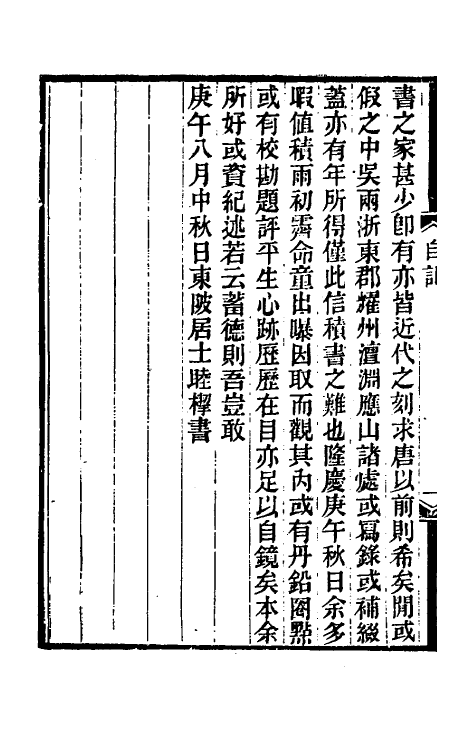 書之家甚少卽有亦皆近代之刻求唐以前則希矣聞或
假之中吳兩浙東郡耀州澶淵應山諸處或寫錄或補綴
蓋亦有年所得僅此信積書之難也隆慶庚午秋日余多
暇值積雨初霽命童出曝因取而觀其內或有丹鉛圈點
或有校勘題評平生心跡歷歷在目亦足以自鏡矣本余
所好或資紀述若云蓄德則吾豈敢
庚午八月中秋日東陂居士睦㮮書
自記